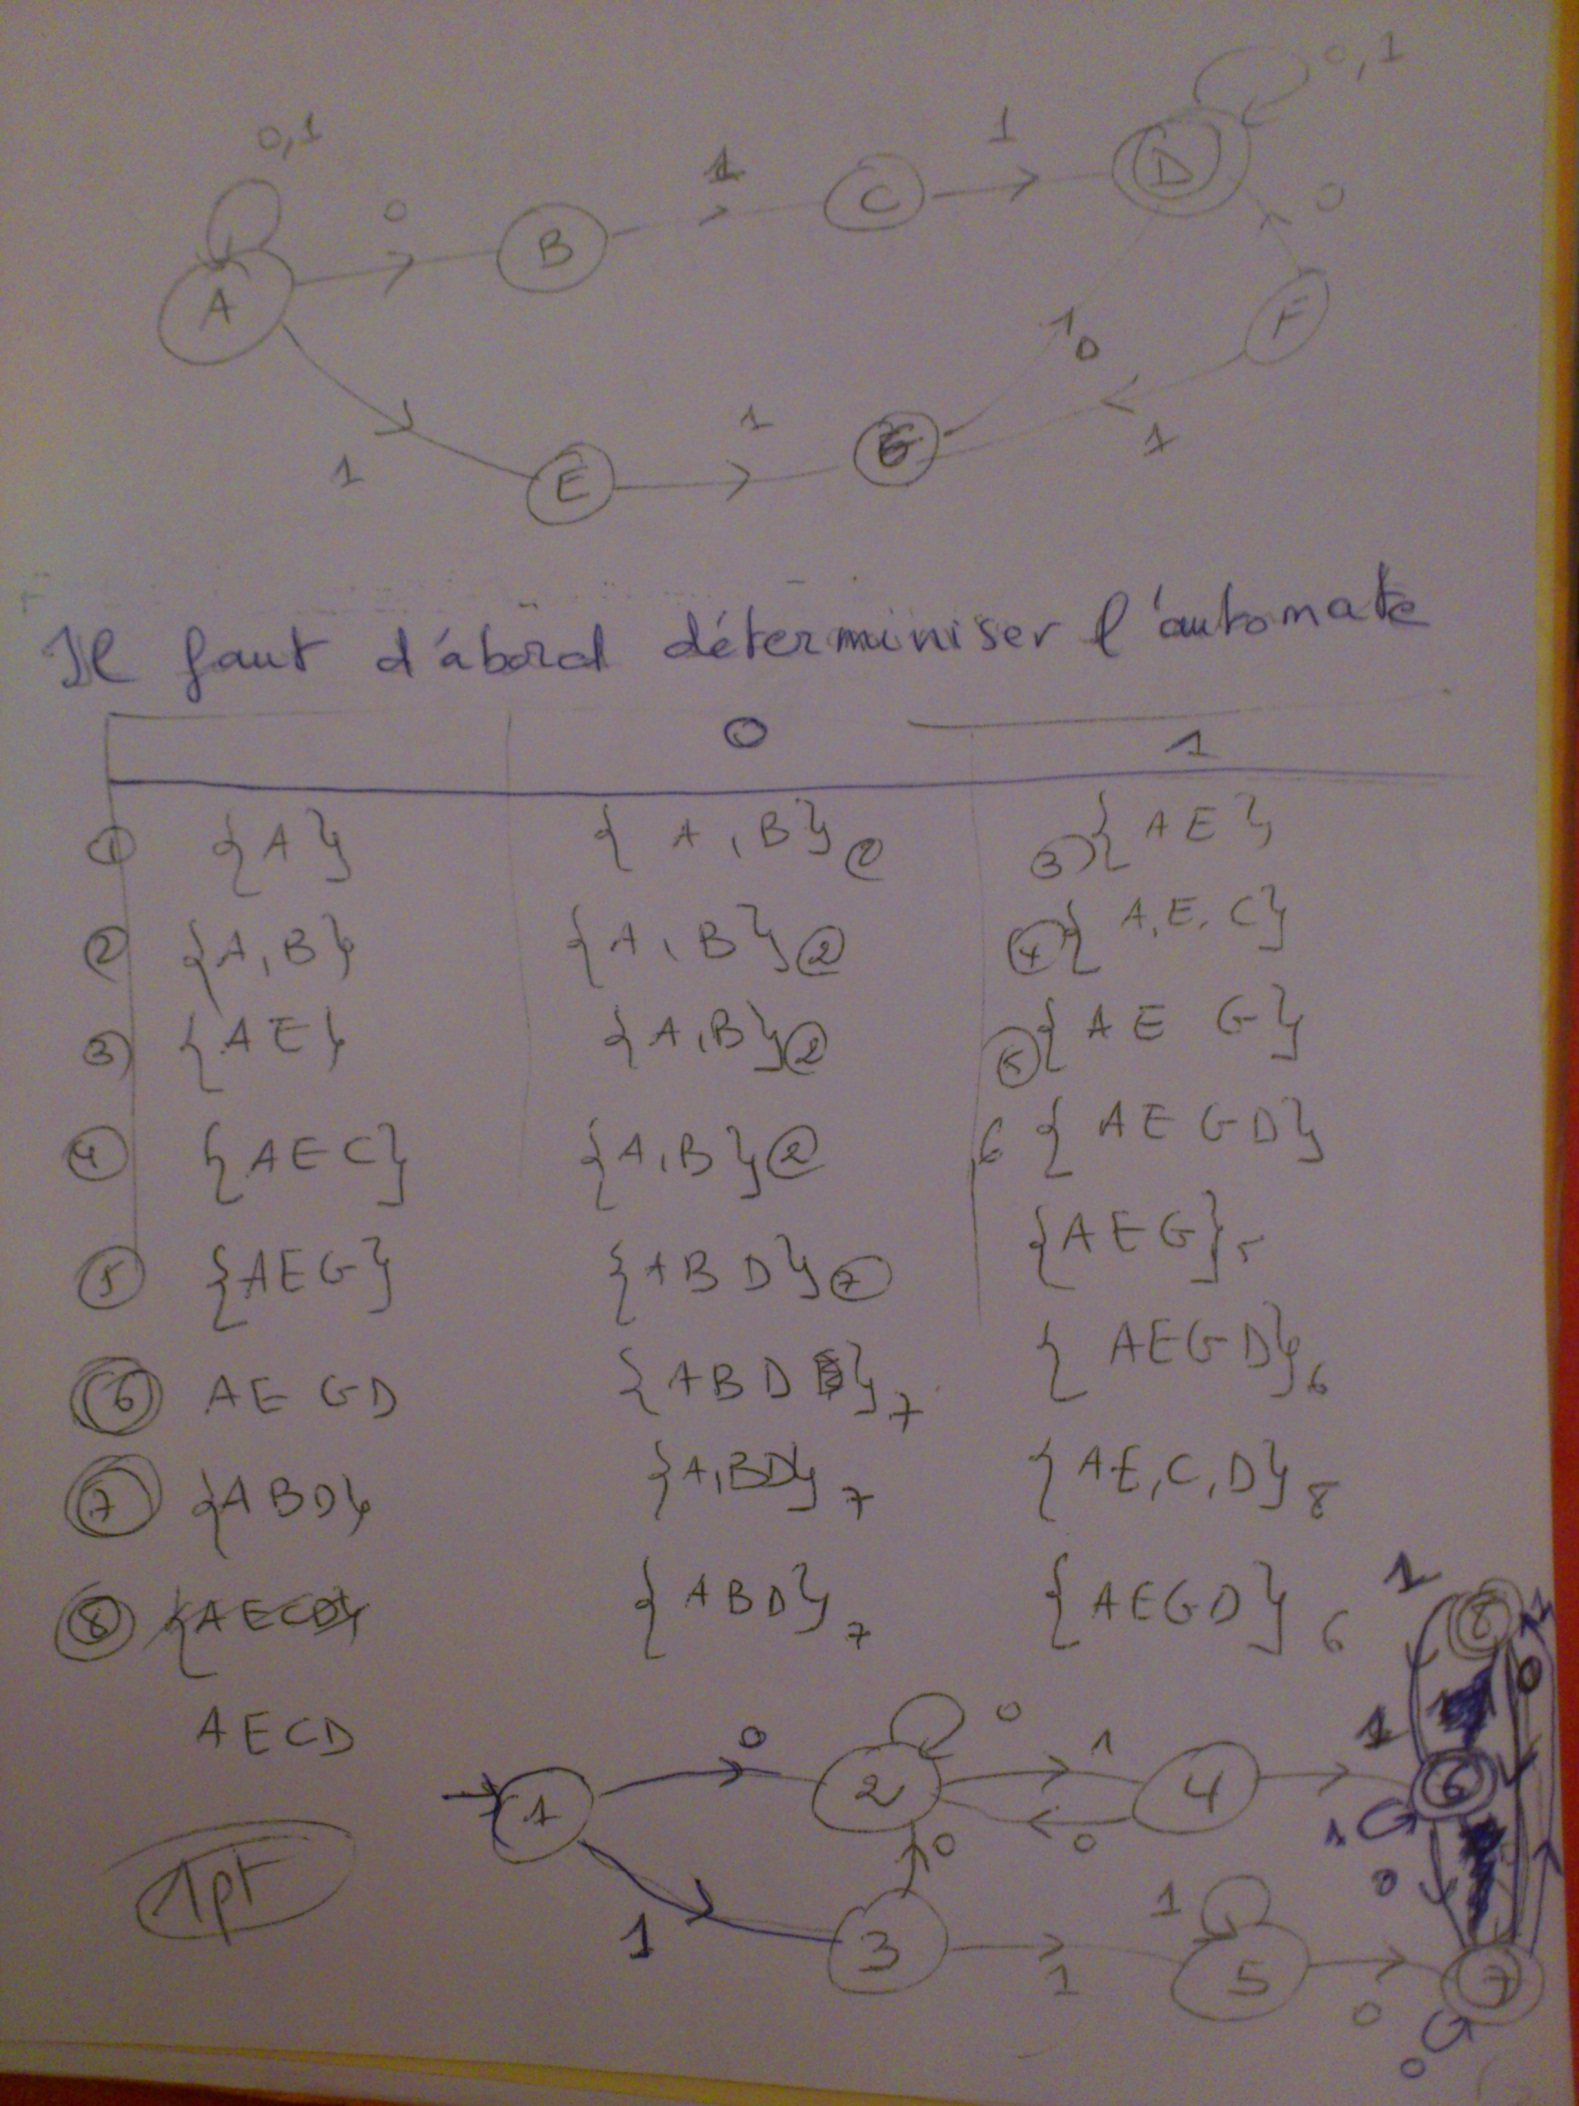 0,1
0,1
0
1
1
A
B
C
D
0
F
0
1
1
1
E
G
Il faut d'abord déterminiser l'automate
0 1
① {A} {A,B} ② ③ {AE}
② {A,B} {A,B} ② ④ {A,E,C}
③ {AE} {A,B} ② ⑤ {AE G}
④ {AEC} {A,B} ② 6 {AEGD}
⑤ {AEG} {ABD} ⑦ {AEG} 5
⑥ AE GD {ABD} 7 {AEGD} 6
⑦ {ABD} {A,BD} 7 {AE,C,D} 8
⑧ {AECD} {ABD} 7 {AEGD} 6
AECD
1 8 1
0
0 0 1 1
1 2 4 6
0 0 1 0
1pt
1 1
3 5 7
1 0
0